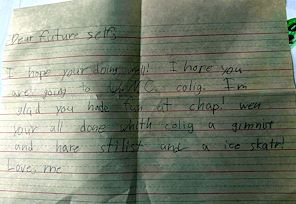 Dear future self,
I hope your doing well! I hope you
are going to U.N.C. colig. I'm
glad you hade fun at chap! wen
your all done whth colig a gimnist
and hare stilist and a ice skatr!
Love, me